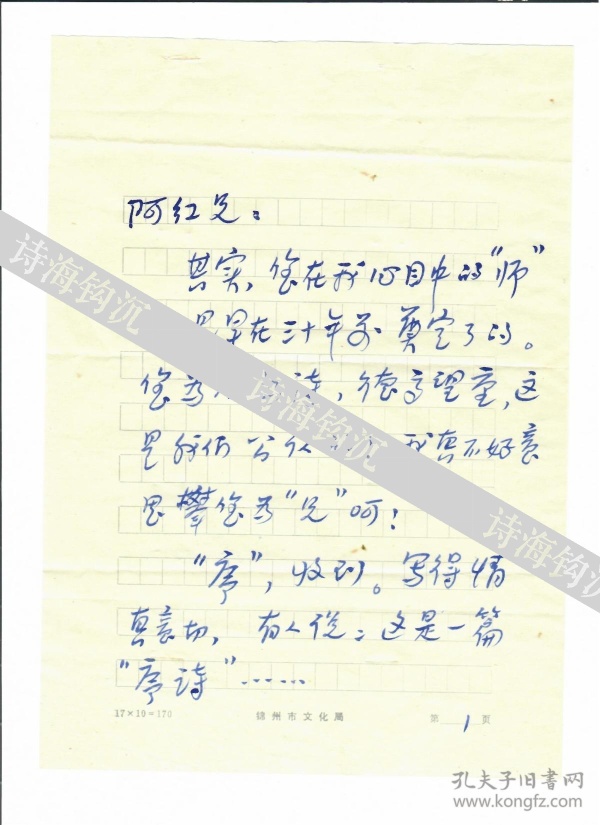 阿红兄：
其实，您在我心目中的“师”
是早在三十年前奠定了的。
您为 诗，德高望重，这
是我们公认 我真不好意
思攀您为“兄”呵！
“序”，收到。写得情
真意切，有人说：这是一篇
“序诗”……
17×10=170
锦州市文化局
第1页
诗海钩沉
诗海钩沉
诗海钩沉
孔夫子旧书网
www.kongfz.com